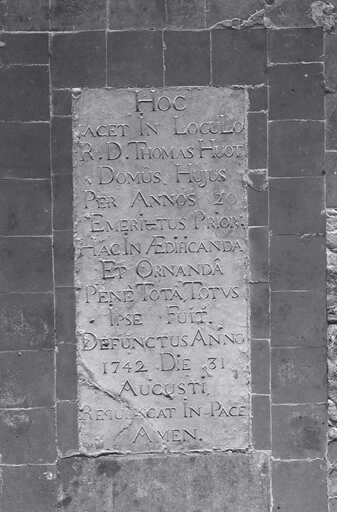 HOC
JACET IN LOCULO
R. D. THOMAS HUOT
DOMUS HUJUS
PER ANNOS 20
EMERITUS PRIOR
HAC IN ÆDIFICANDA
ET ORNANDÂ
PENÈ TOTA TOTVS
IPSE FUIT
DEFUNCTUS ANNO
1742 DIE 31
AUGUSTI
REQUIESCAT IN PACE
AMEN.